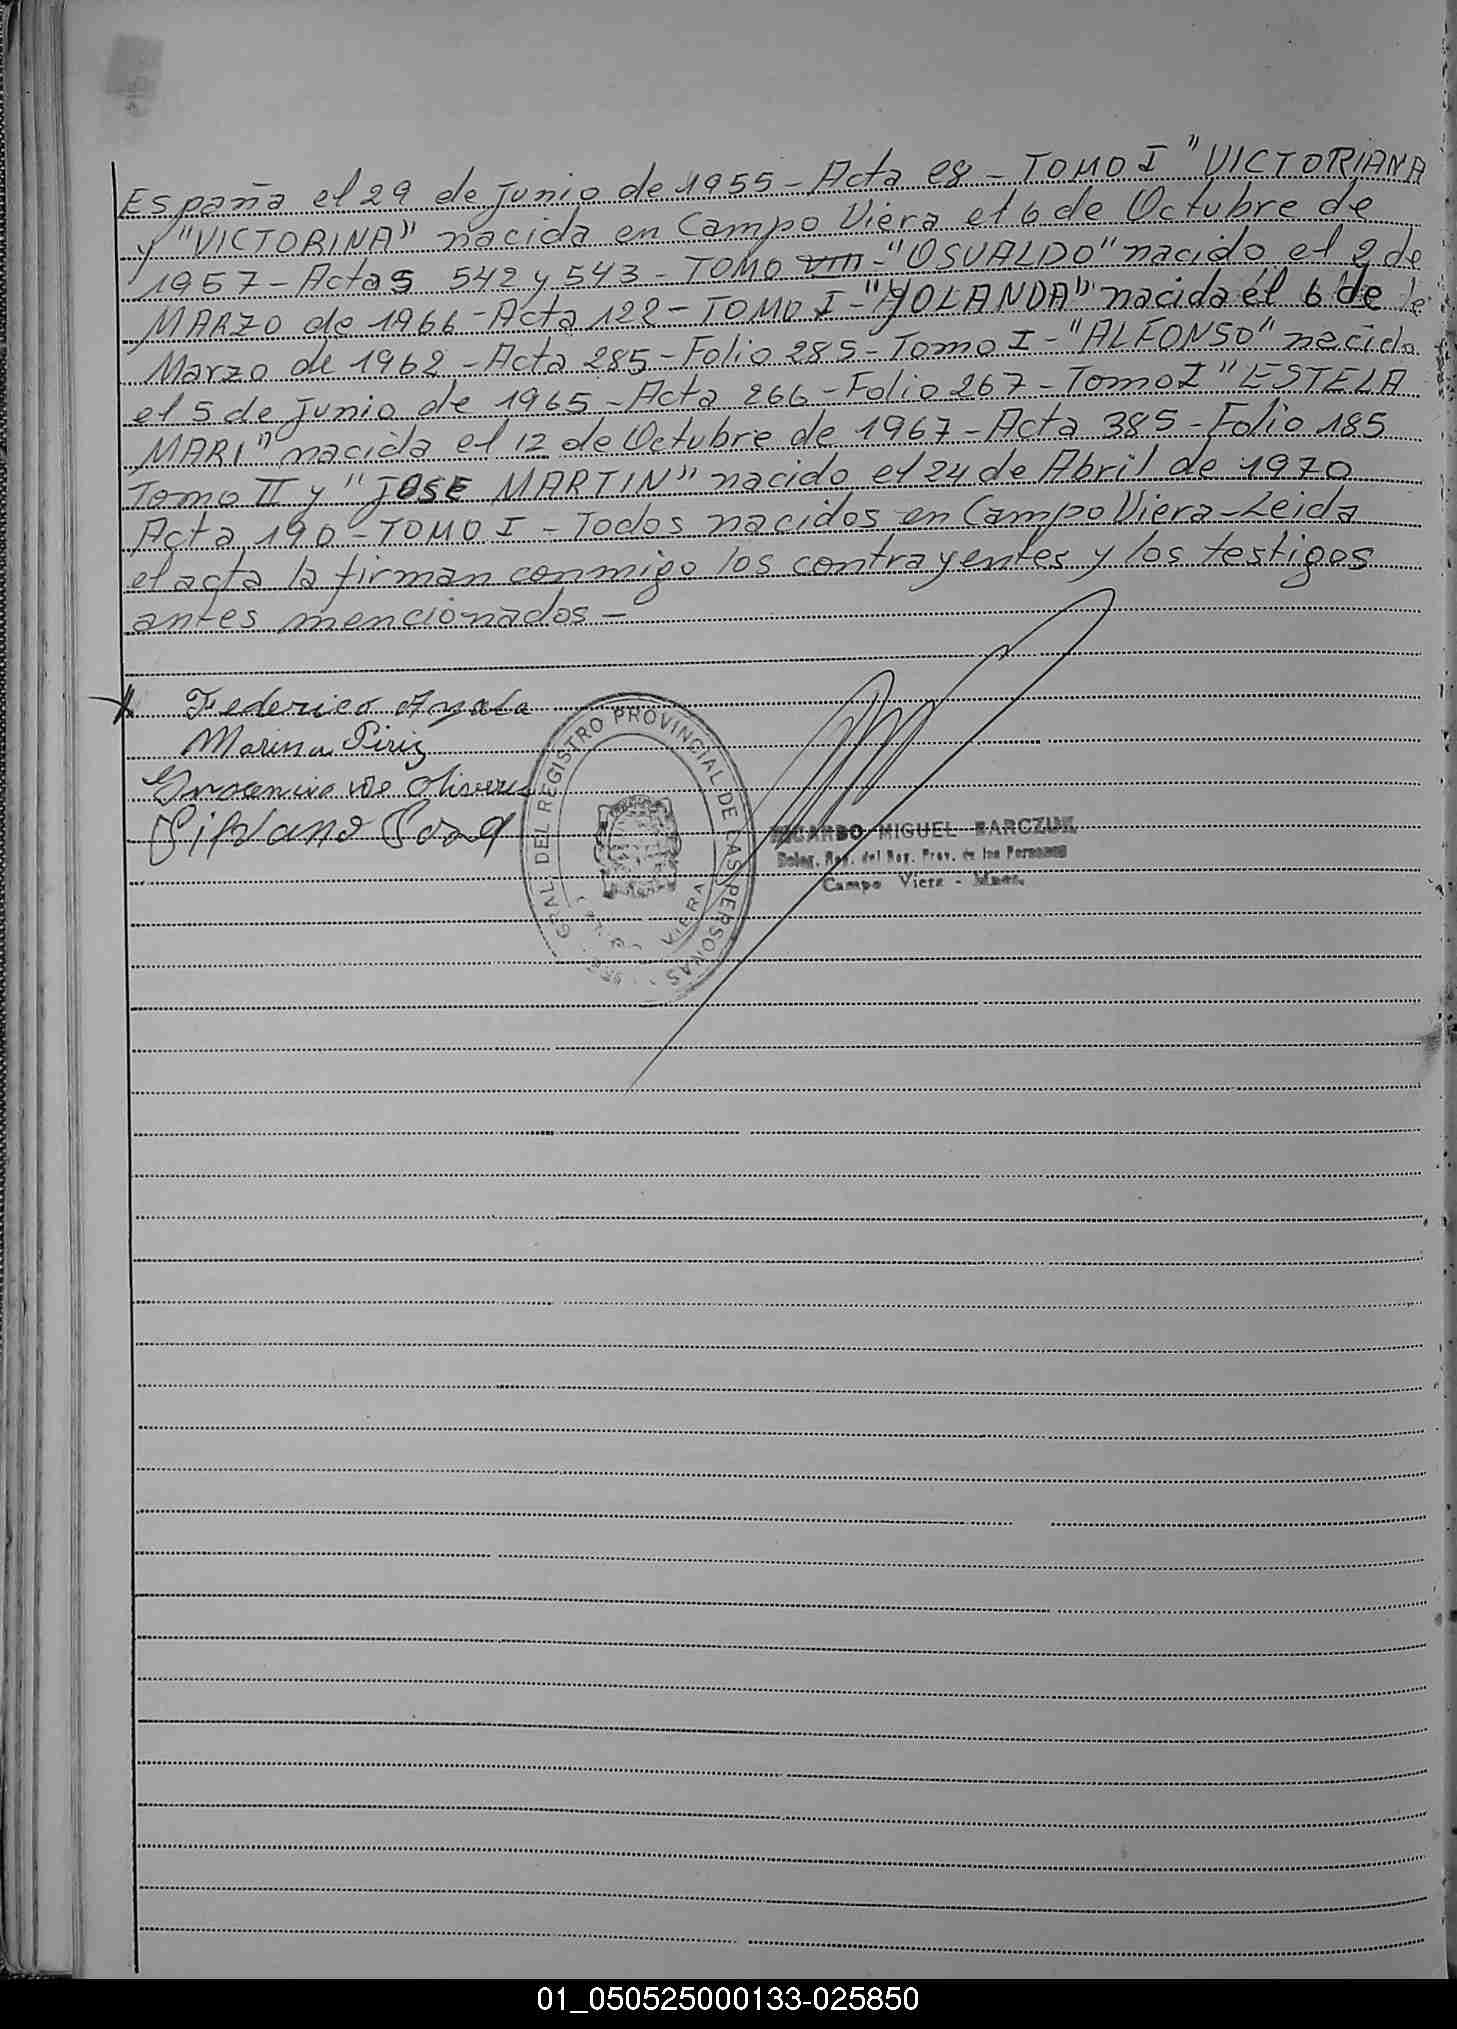 España el 29 de Junio de 1955 - Acta 28 - TOMO I "VICTORIANA
y "VICTORINA" nacida en Campo Viera el 6 de Octubre de
1957 - Actas 542 y 543 - TOMO VIII - "OSVALDO" nacido el 2 de
MARZO de 1966 - Acta 122 - TOMO I - "YOLANDA" nacida el 6 de
Marzo de 1962 - Acta 285 - Folio 285 - Tomo I - "ALFONSO" nacido
el 5 de Junio de 1965 - Acta 266 - Folio 267 - Tomo I "ESTELA
MARI" nacida el 12 de Octubre de 1967 - Acta 385 - Folio 185
Tomo II y "JOSE MARTIN" nacido el 24 de Abril de 1970
Acta 190 - TOMO I - Todos nacidos en Campo Viera - Leida
el acta la firman conmigo los contrayentes y los testigos
antes mencionados -
Federico Ayala
Marina Piriz
de Olivera
Sipriano
GRAL. DEL REGISTRO PROVINCIAL DE LAS PERSONAS
VIERA
RICARDO MIGUEL BARCZUK
Deleg. Reg. del Reg. Prov. de las Personas
Campo Viera - Mnes.
01_050525000133-025850